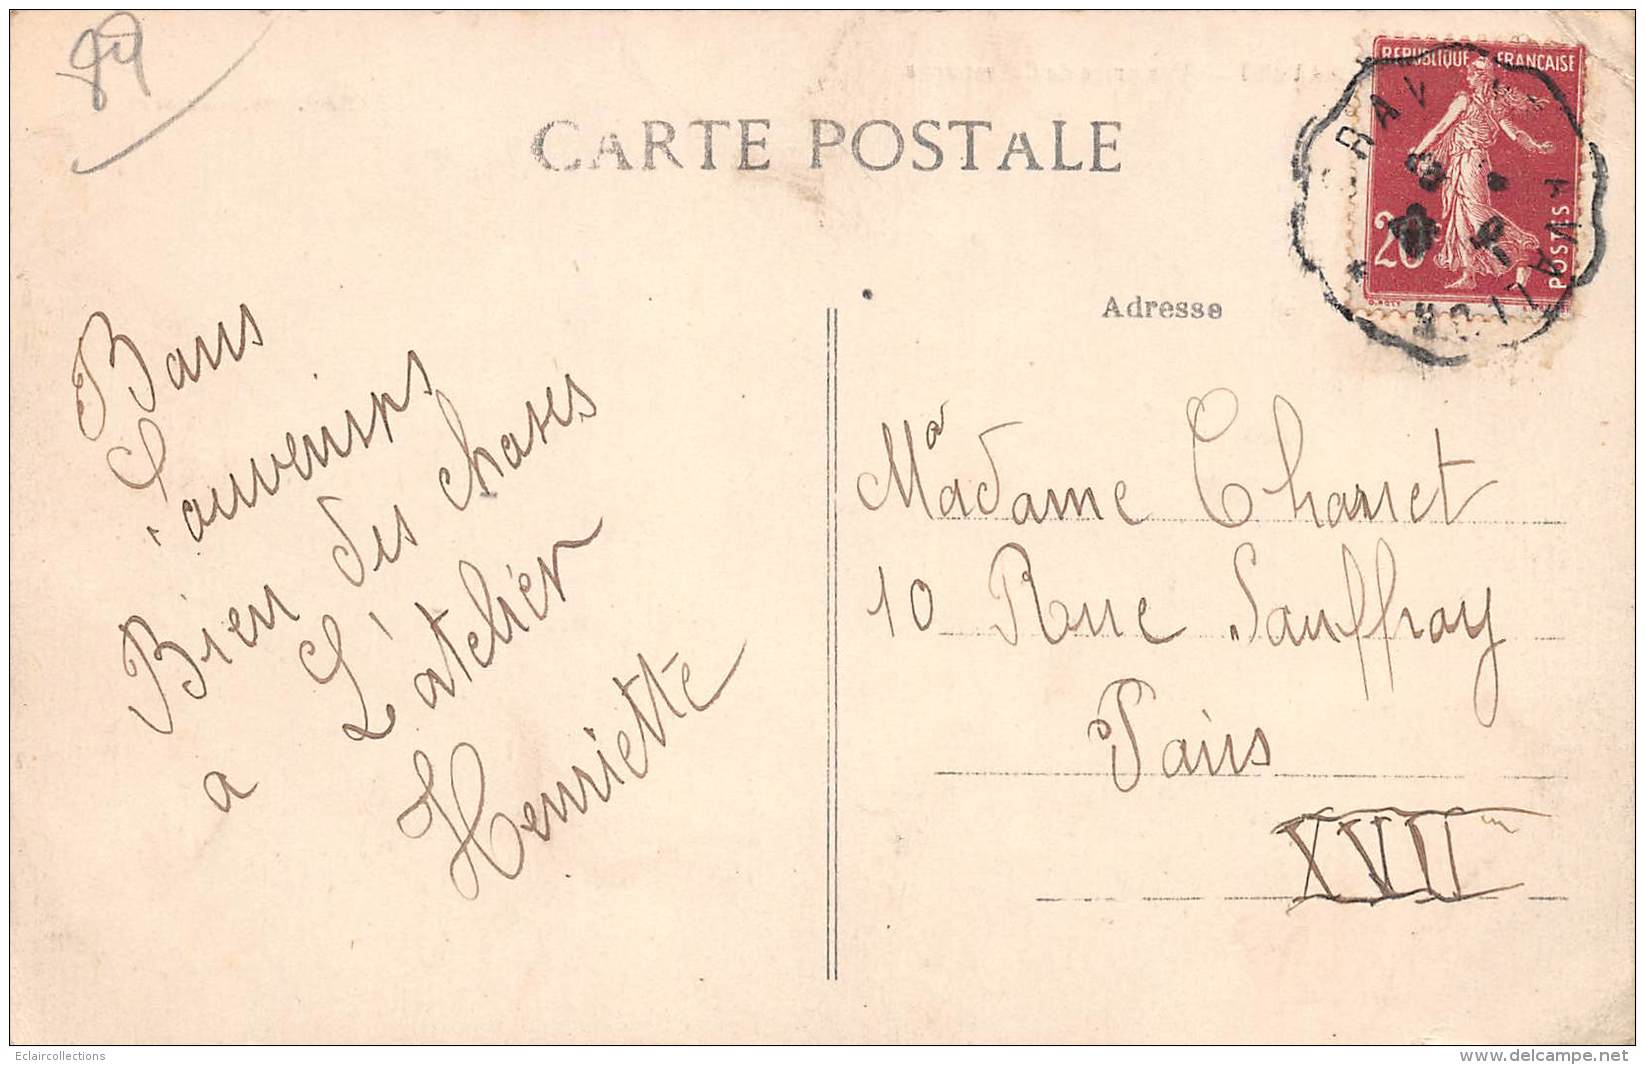 89
CARTE POSTALE
REPUBLIQUE FRANÇAISE
20c
POSTES
Adresse
Bons
Souvenirs
Bien des choses
a L'atelier
Henriette
Madame Charret
10 Rue Sauffroy
Paris
XVII
Eclaircollections
www.delcampe.net